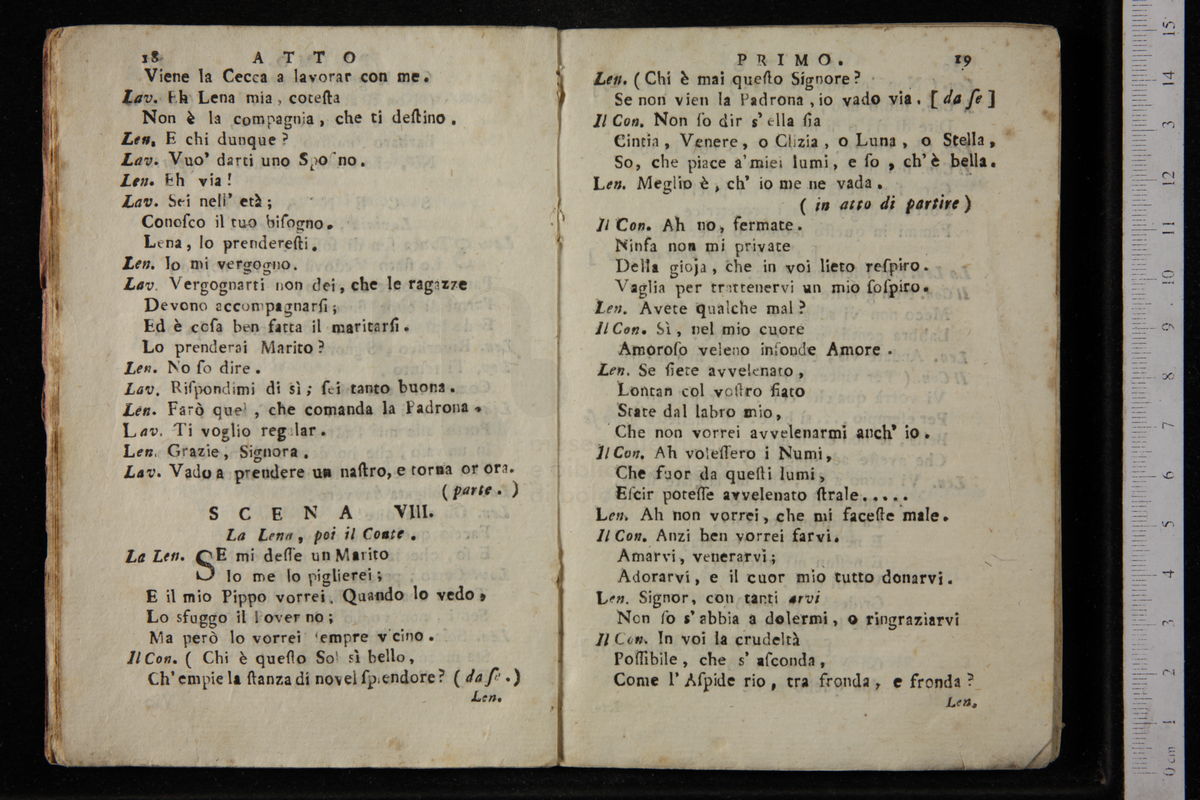 18 ATTO
Viene la Cecca a lavorar con me.
Lav. Eh Lena mia, coteſta
Non è la compagnia, che ti deſtino.
Len. E chi dunque?
Lav. Vuo' darti uno Spoſino.
Len. Eh via!
Lav. Sei nell' età;
Conoſco il tuo biſogno.
Lena, lo prendereſti.
Len. Io mi vergogno.
Lav. Vergognarti non dei, che le ragazze
Devono accompagnarſi;
Ed è coſa ben fatta il maritarſi.
Lo prenderai Marito?
Len. No ſo dire.
Lav. Riſpondimi di sì; ſei tanto buona.
Len. Farò quel, che comanda la Padrona.
Lav. Ti voglio regalar.
Len. Grazie, Signora.
Lav. Vado a prendere un naſtro, e torna or ora.
(parte.)
SCENA VIII.
La Lena, poi il Conte.
La Len. SE mi deſſe un Marito
Io me lo piglierei;
E il mio Pippo vorrei. Quando lo vedo,
Lo sfuggo il Poverino;
Ma però lo vorrei ſempre vicino.
Il Con. (Chi è queſto Sol sì bello,
Ch' empie la ſtanza di novel ſplendore? (da ſe.)
Len.
PRIMO. 19
Len. (Chi è mai queſto Signore?
Se non vien la Padrona, io vado via. [da ſe]
Il Con. Non ſo dir s' ella ſia
Cintia, Venere, o Clizia, o Luna, o Stella,
So, che piace a' miei lumi, e ſo, ch' è bella.
Len. Meglio è, ch' io me ne vada.
(in atto di partire)
Il Con. Ah no, fermate.
Ninfa non mi private
Della gioja, che in voi lieto reſpiro.
Vaglia per trattenervi un mio ſoſpiro.
Len. Avete qualche mal?
Il Con. Sì, nel mio cuore
Amoroſo veleno infonde Amore.
Len. Se ſiete avvelenato,
Lontan col voſtro fiato
State dal labro mio,
Che non vorrei avvelenarmi anch' io.
Il Con. Ah voleſſero i Numi,
Che fuor da queſti lumi,
Eſcir poteſſe avvelenato ſtrale.....
Len. Ah non vorrei, che mi faceſte male.
Il Con. Anzi ben vorrei farvi.
Amarvi, venerarvi;
Adorarvi, e il cuor mio tutto donarvi.
Len. Signor, con tanti arvi
Non ſo s' abbia a dolermi, o ringraziarvi
Il Con. In voi la crudeltà
Poſſibile, che s' aſconda,
Come l' Aſpide rio, tra fronda, e fronda?
Len.